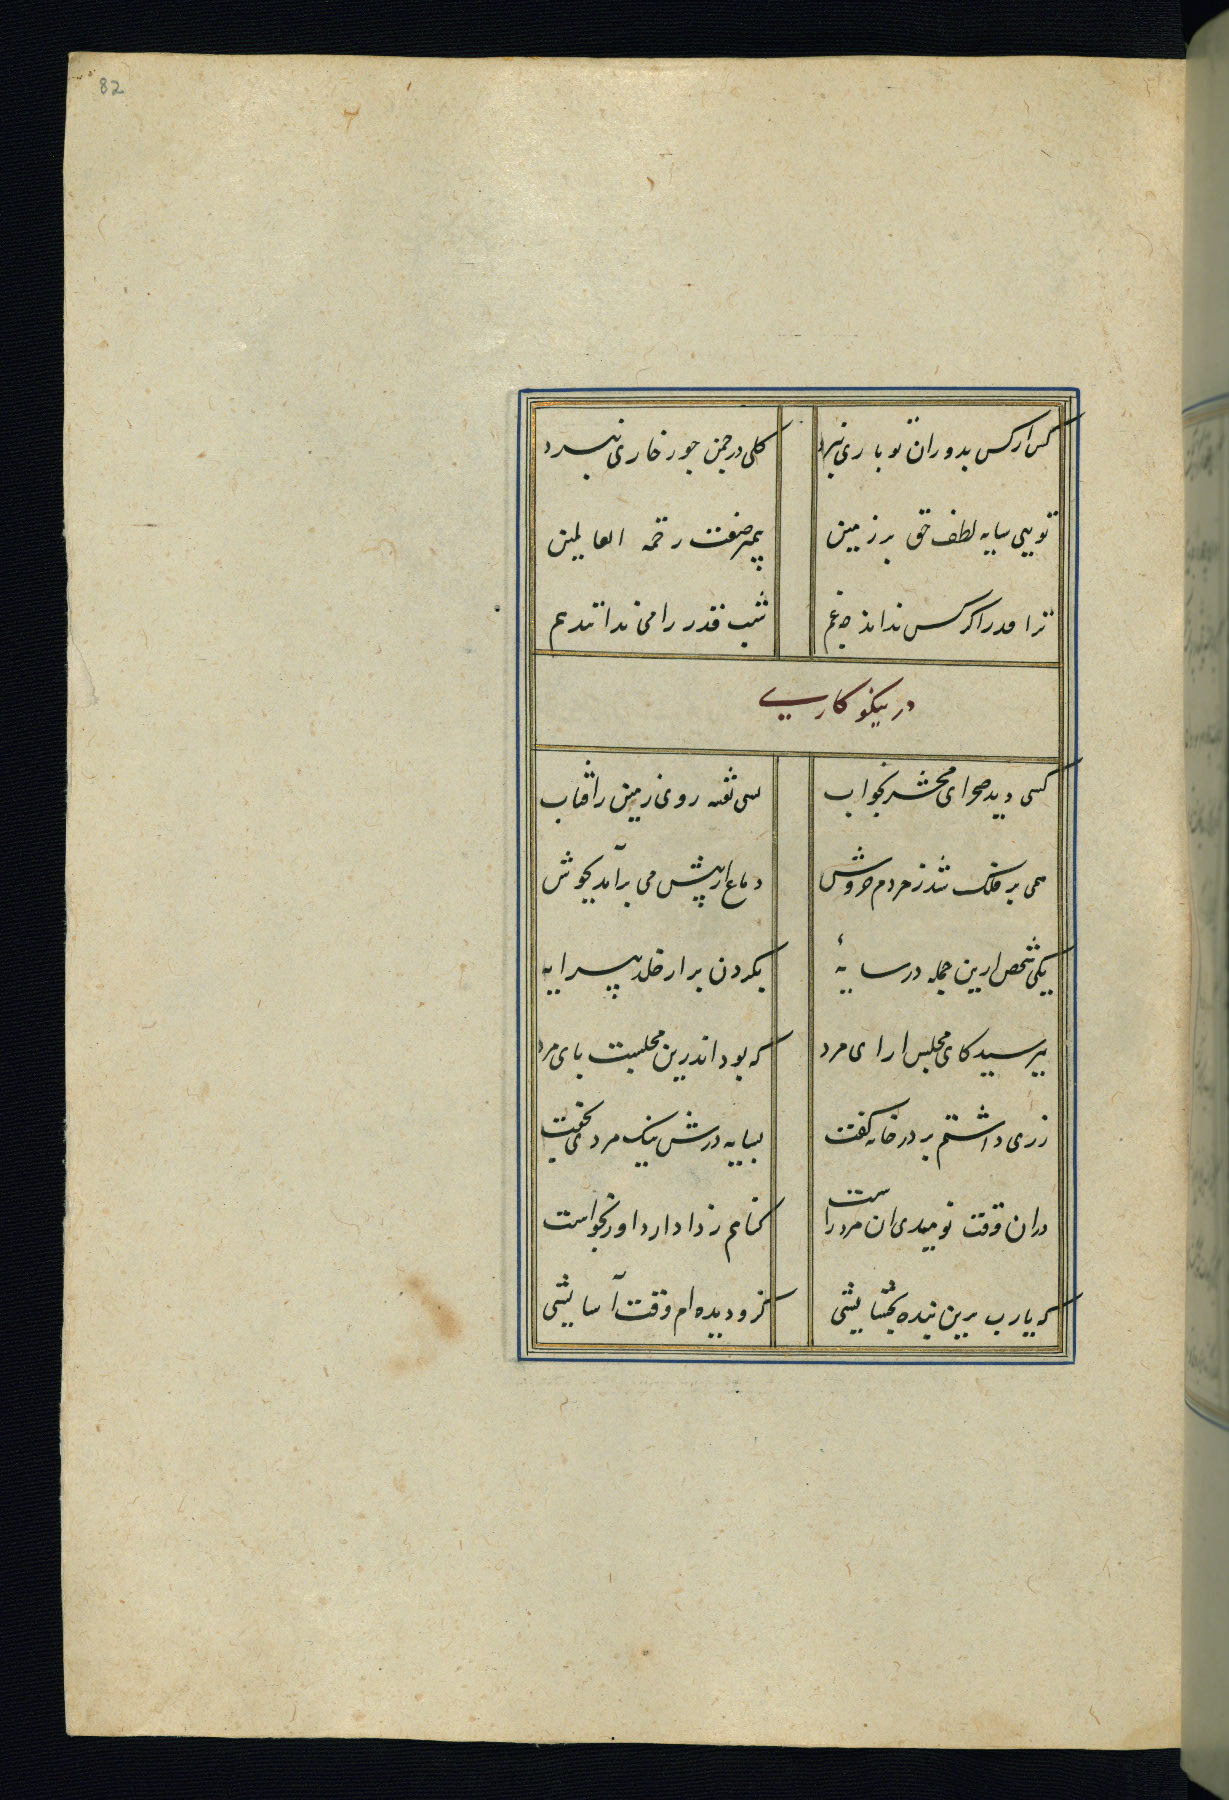 82
کس ار کس بدوران تو باری نبرد کلی در چمن جور خاری نبرد
تویی سایه لطف حق بر زمین پیمبر صفت رحمه العالمین
ترا قدر اگر کس نداند چه غم شب قدر را می ندانند هم
در نیکو کاری
کسی دید صحرای محشر بخواب مس تفته روی زمین ز آفتاب
همی بر فلک شد ز مردم خروش دماغ از تپش می برآمد بجوش
یکی شخص ازین جمله در سایهٔ بگردن بر از خلد پیرایه
بپرسید کای مجلس ارای مرد که بود اندرین مجلست پای مرد
رزی داشتم بر در خانه گفت بسایه درش نیک مردی بخفت
دران وقت نومیدی ان مرد راست کناهم ز دادار داور بخواست
که یارب برین بنده بخشایشی کزو دیده ام وقت آسایشی